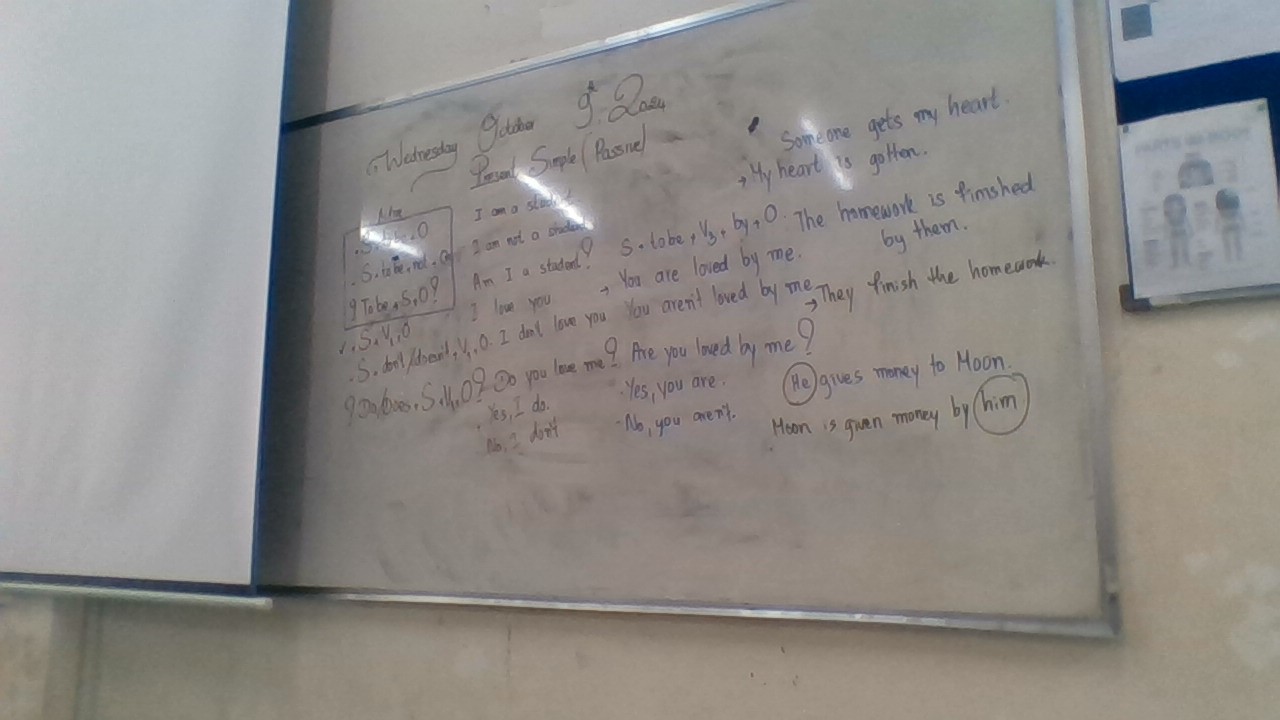 Wednesday October 9th 2024
Present Simple (Passive)
S + to be + O
S + to be + not + O
? To be + S + O?
S + V1 + O
S + don't/doesn't + V1 + O.
? Do/Does + S + V1 + O?
I am a student
I am not a student
Am I a student?
I love you
I don't love you
Do you love me?
Yes, I do.
No, I don't
S + to be + V3 + by + O.
→ You are loved by me.
You aren't loved by me
Are you loved by me?
- Yes, you are.
- No, you aren't.
Someone gets my heart.
→ My heart is gotten.
The homework is finished
by them.
→ They finish the homework.
He gives money to Moon.
Moon is given money by him